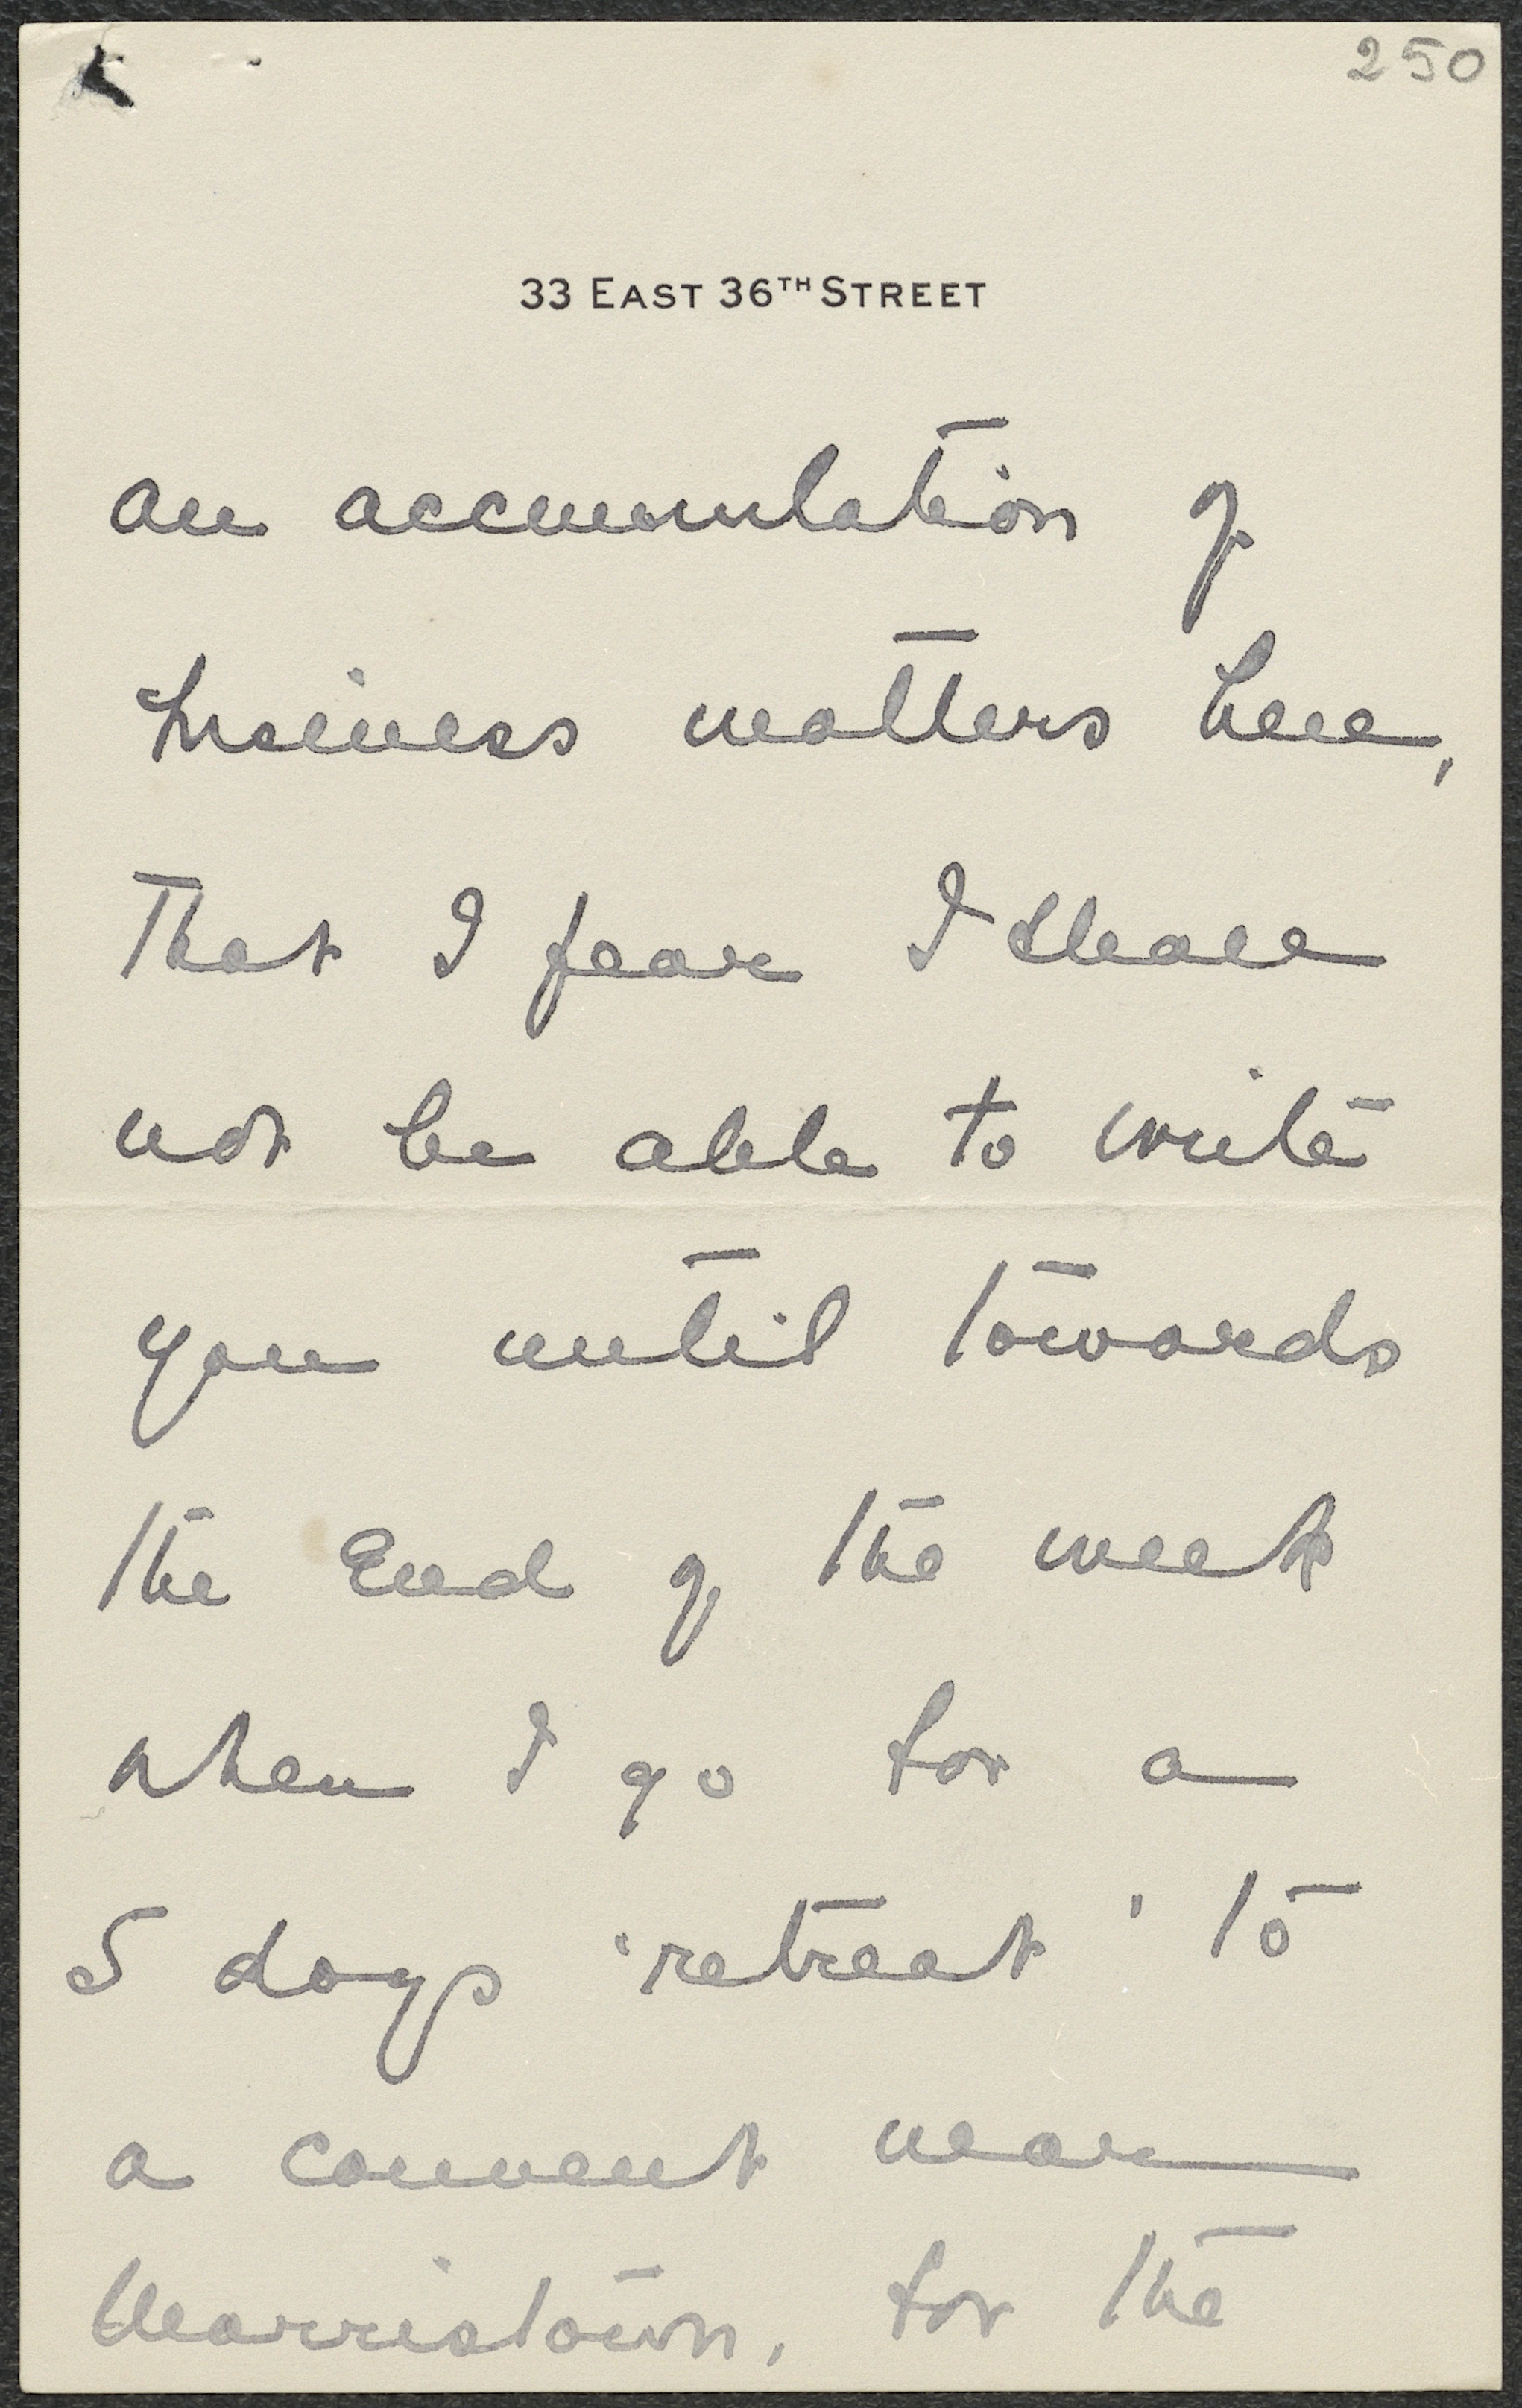 250
33 EAST 36TH STREET
an accumulation of
business matters here,
that I fear I shall
not be able to write
you until towards
the End of the week
when I go for a
5 days 'retreat' to
a convent near
Morristown, for the